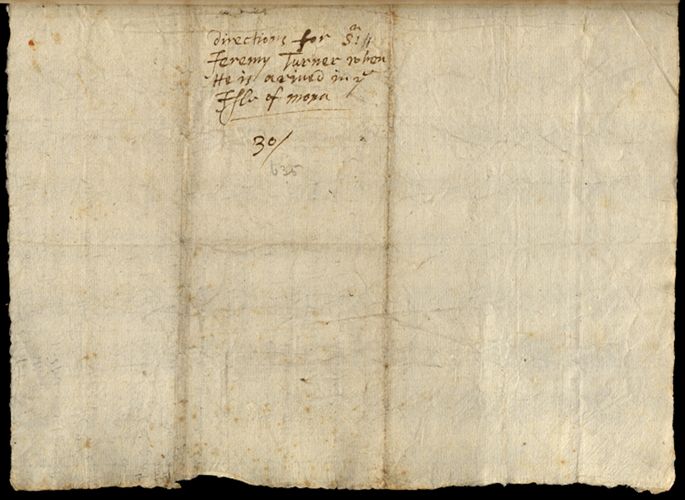 directions for Sr
Jeremy Turner when
He is arived in ye
Isle of mona
30/
635